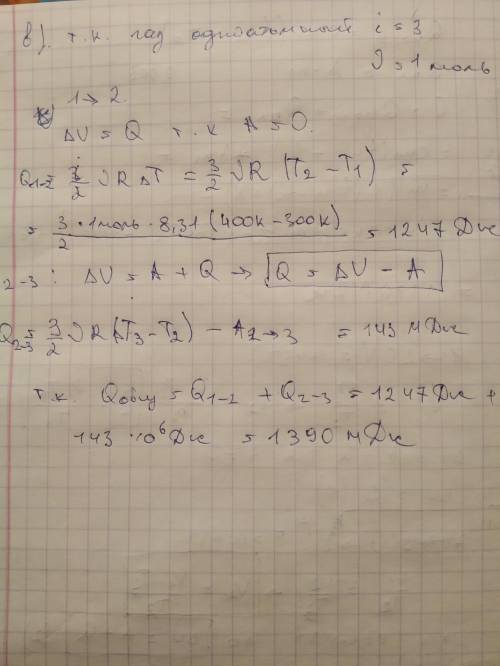 в). т.к. газ одноатомный i = 3
ϑ = 1 моль
1 → 2.
ΔU = Q т.к A = 0.
Q₁₋₂ = i/2 ϑRΔT = 3/2 ϑR (T₂ − T₁) =
= 3/2 · 1 моль · 8,31 (400к − 300к) = 1247 Дж
2-3: ΔU = A + Q → Q = ΔU − A
Q₂₋₃ = 3/2 ϑR(ΔT₃ − T₂) − A₂→₃ = 143 мДж
т.к. Qобщ = Q₁₋₂ + Q₂₋₃ = 1247 Дж +
143 · 10⁶ Дж = 1390 мДж